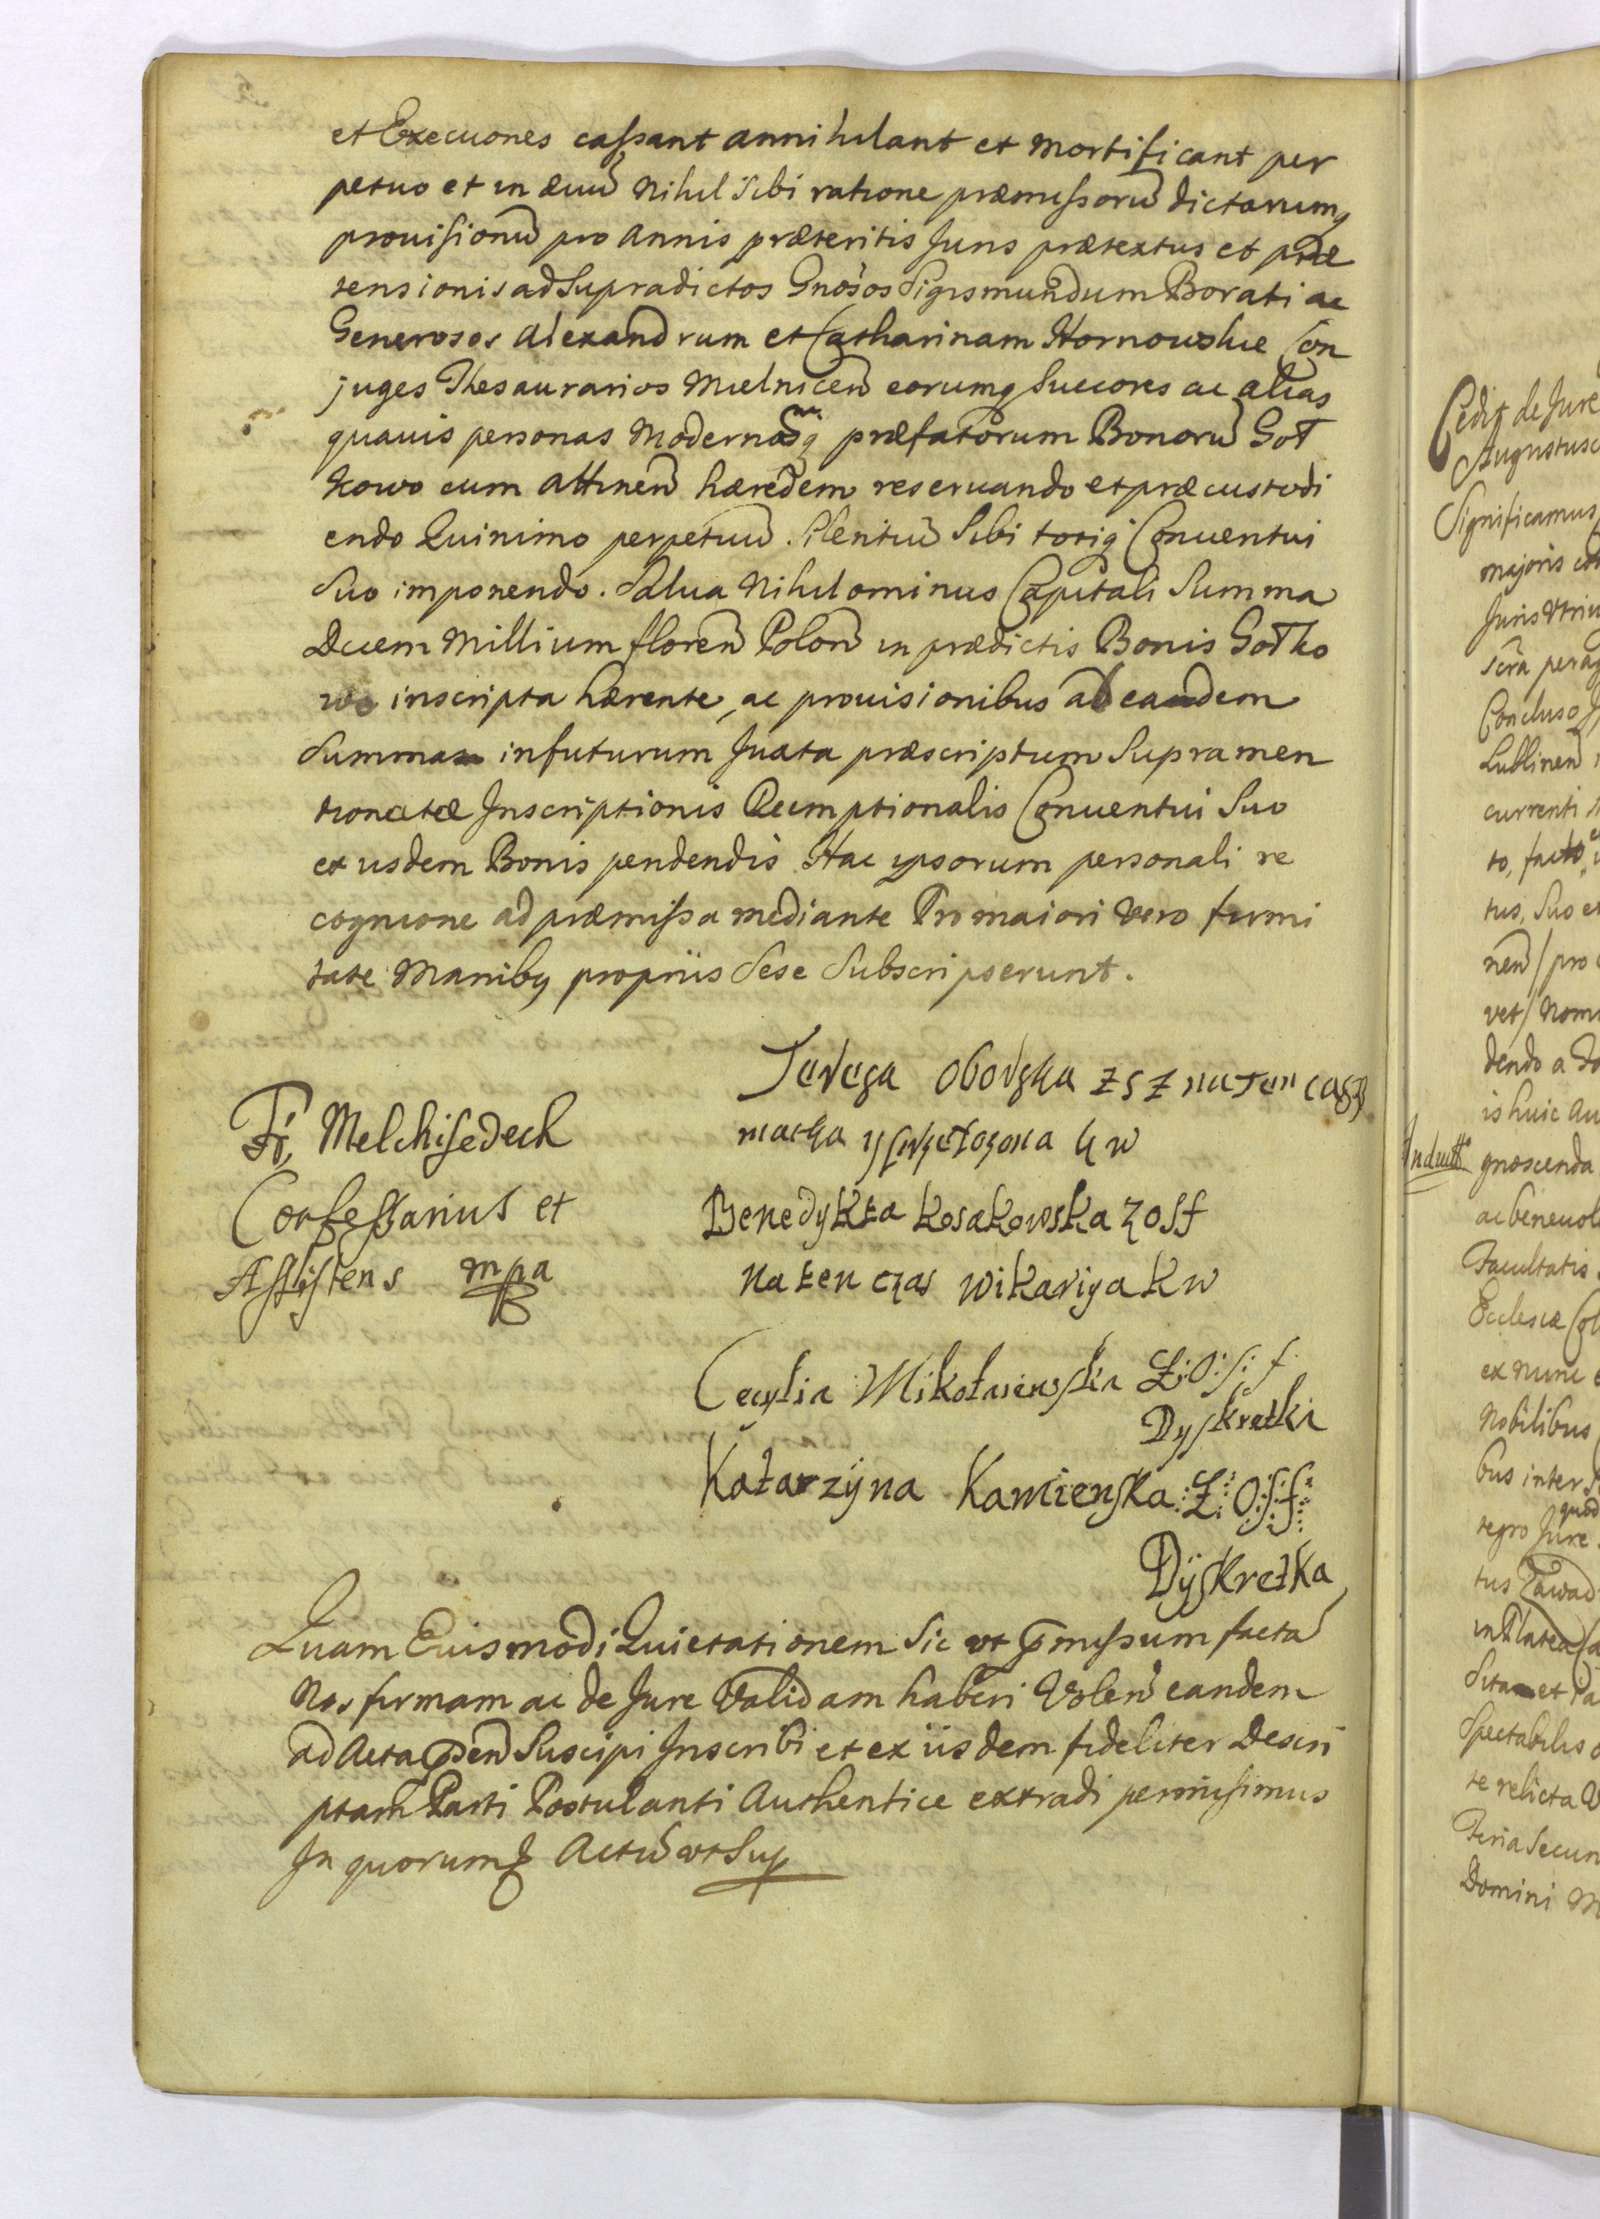 et Execuones cassant annihilant et mortificant per
petuo et in æuu͂ Nihil Sibi ratione præmissoru͂ dictarumq
prouisionu͂ pro annis præteritis Juris prætextus et præ
tensionis ad Supradictos Gnosos Sigismundum Borati ac
Generosos Alexandrum et Catharinam Hornowskie Con
juges Thesaurarios Mielnicen͂ eorumq Succores ac alias
quauis personas Modernosq præfatorum Bonoru͂ Got
kowo cum attinen͂ hæredem reseruando et præcustodi
endo Quinimo perpetuu͂ Silentiu͂ Sibi totiq Conuentui
Suo imponendo. Salua Nihilominus Capitali Summa
Decem Millium floren͂ Polon͂ in prædictis Bonis Gotko
wo inscripta hærente, ac prouisionibus ab eandem
Summam in futurum Juxta præscriptum Supramen
tionatæ Inscriptionis Reemptionalis Conuentui Suo
ex iisdem Bonis pendendis Hac ipsorum personali re
cognicione ad præmissa mediante Pro maiori vero firmi
tate Manibq propriis Sese Subscripserunt.
Teresa Oborska ZSZ na ten czas
matka y K W
Fr, Melchisedech
Confessarius et
Assistens mpa
Benedykta Kosakowska ZOSF
na ten czas wikariya K W
Cecylia Mikołaiewska Z:O:S:f
Dyskretka
Katarzÿna Kamienska:Z:O:S:f:
Dÿskretka
Quam Eiusmodi Quietationem Sic vt pmissum facta͂
Nos firmam ac de Jure Validam haberi Volen͂ eandem
ad Acta psen͂ Suscipi Inscribi et ex iisdem fideliter Descri
ptam Parti Postulanti Authentice extradi permisimus
In quorum Actu͂ vt Sup
Cedit de Jure
Augustus
Significamus
majoris
Juris Vtriu
scra perag
Concluso
Lublinen͂
currenti
to, facto
tus, Suo et
nen͂/ pro
vet/ Nom
dendo a
is huic au
Indultu
gnoscenda
ac beneuol
Facultatis
Ecclesiæ Col
ex nunc
Nobilibus
bus inter
quod
tegro Jure
tus Zawad
in Platea
Sitam et
Spectabilis
te relicta
Feria Secun
Domini M